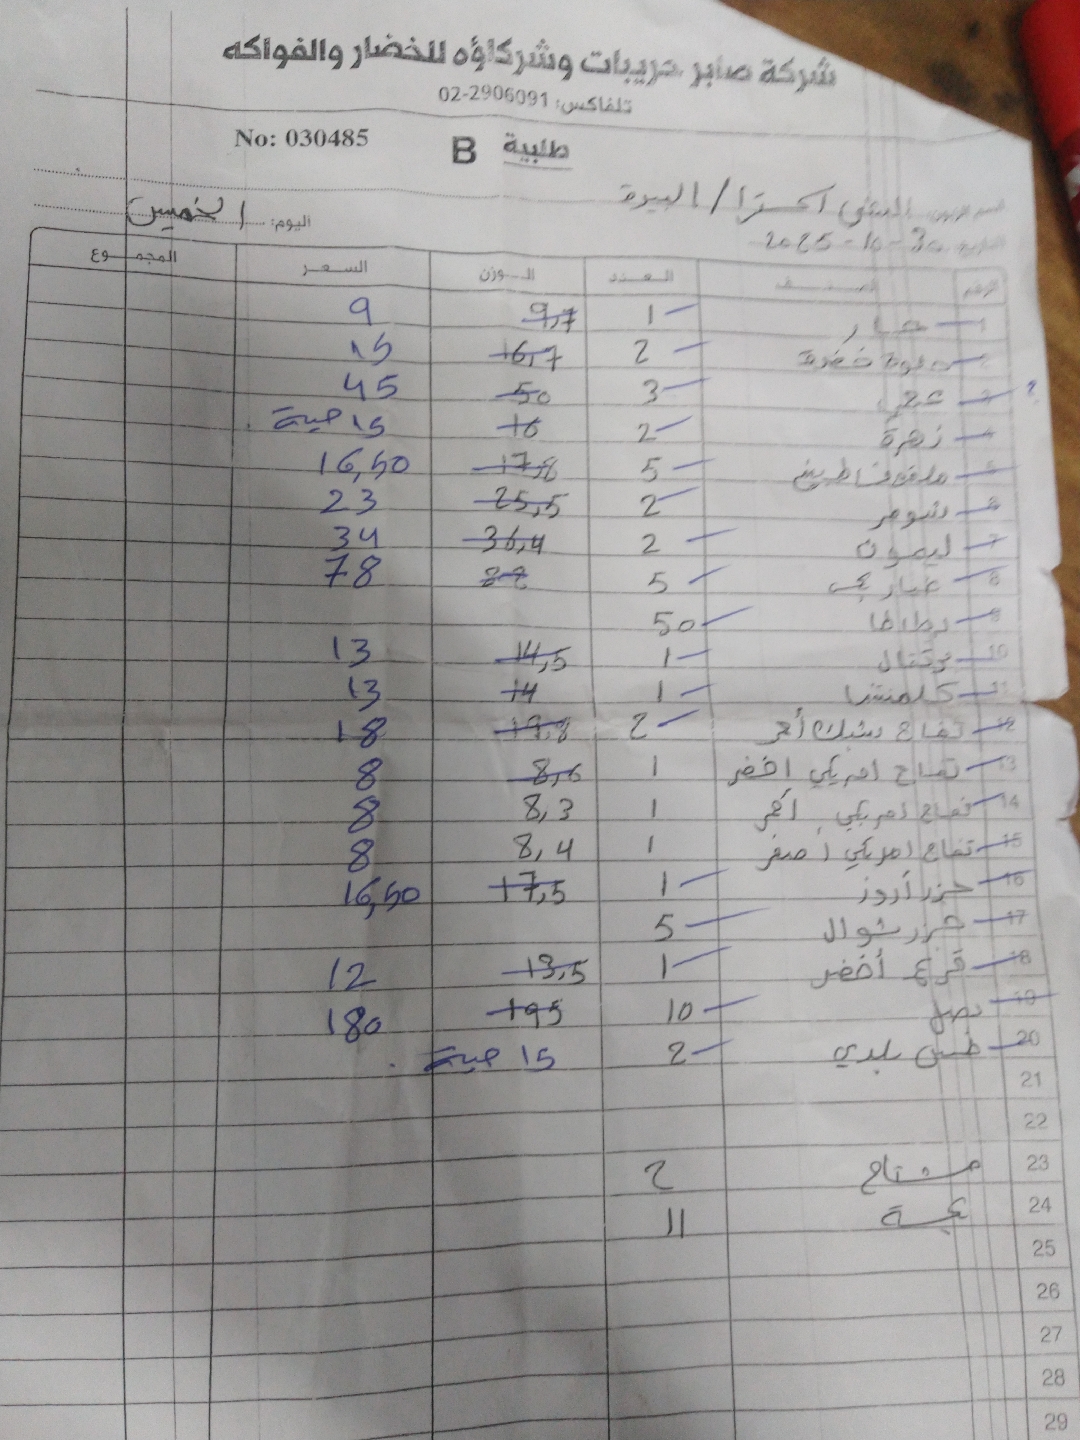 شركة صابر حريبات وشركاؤه للخضار والفواكه
تلفاكس: 02-2906091
No: 030485 B طلبية
اسم الزبون: اكسترا / البيرة
التاريخ: 30-10-2025 اليوم: الخميس
الرقم الصنف العدد الوزن السعر المجموع
1 خيار 1 9,7 9
2 2 16,7 15
3 3 50 45
4 زهرة 2 16 15 حبة
5 ملفوف 5 17,8 16,50
6 شومر 2 25,5 23
7 ليمون 2 36,4 34
8 خيار 5 88 78
9 بطاطا 50
10 برتقال 1 14,5 13
11 كلمنتينا 1 14 13
12 تفاح أحمر 2 19,8 18
13 تفاح امريكي اخضر 1 8,6 8
14 تفاح امريكي أحمر 1 8,3 8
15 تفاح امريكي اصفر 1 8,4 8
16 جزر أروز 1 17,5 16,50
17 جزر شوال 5
18 قرع أخضر 1 13,5 12
19 بصل 10 195 180
20 خس بلدي 2 15 حبة
21
22
23 مشتاح 2
24 11
25
26
27
28
29